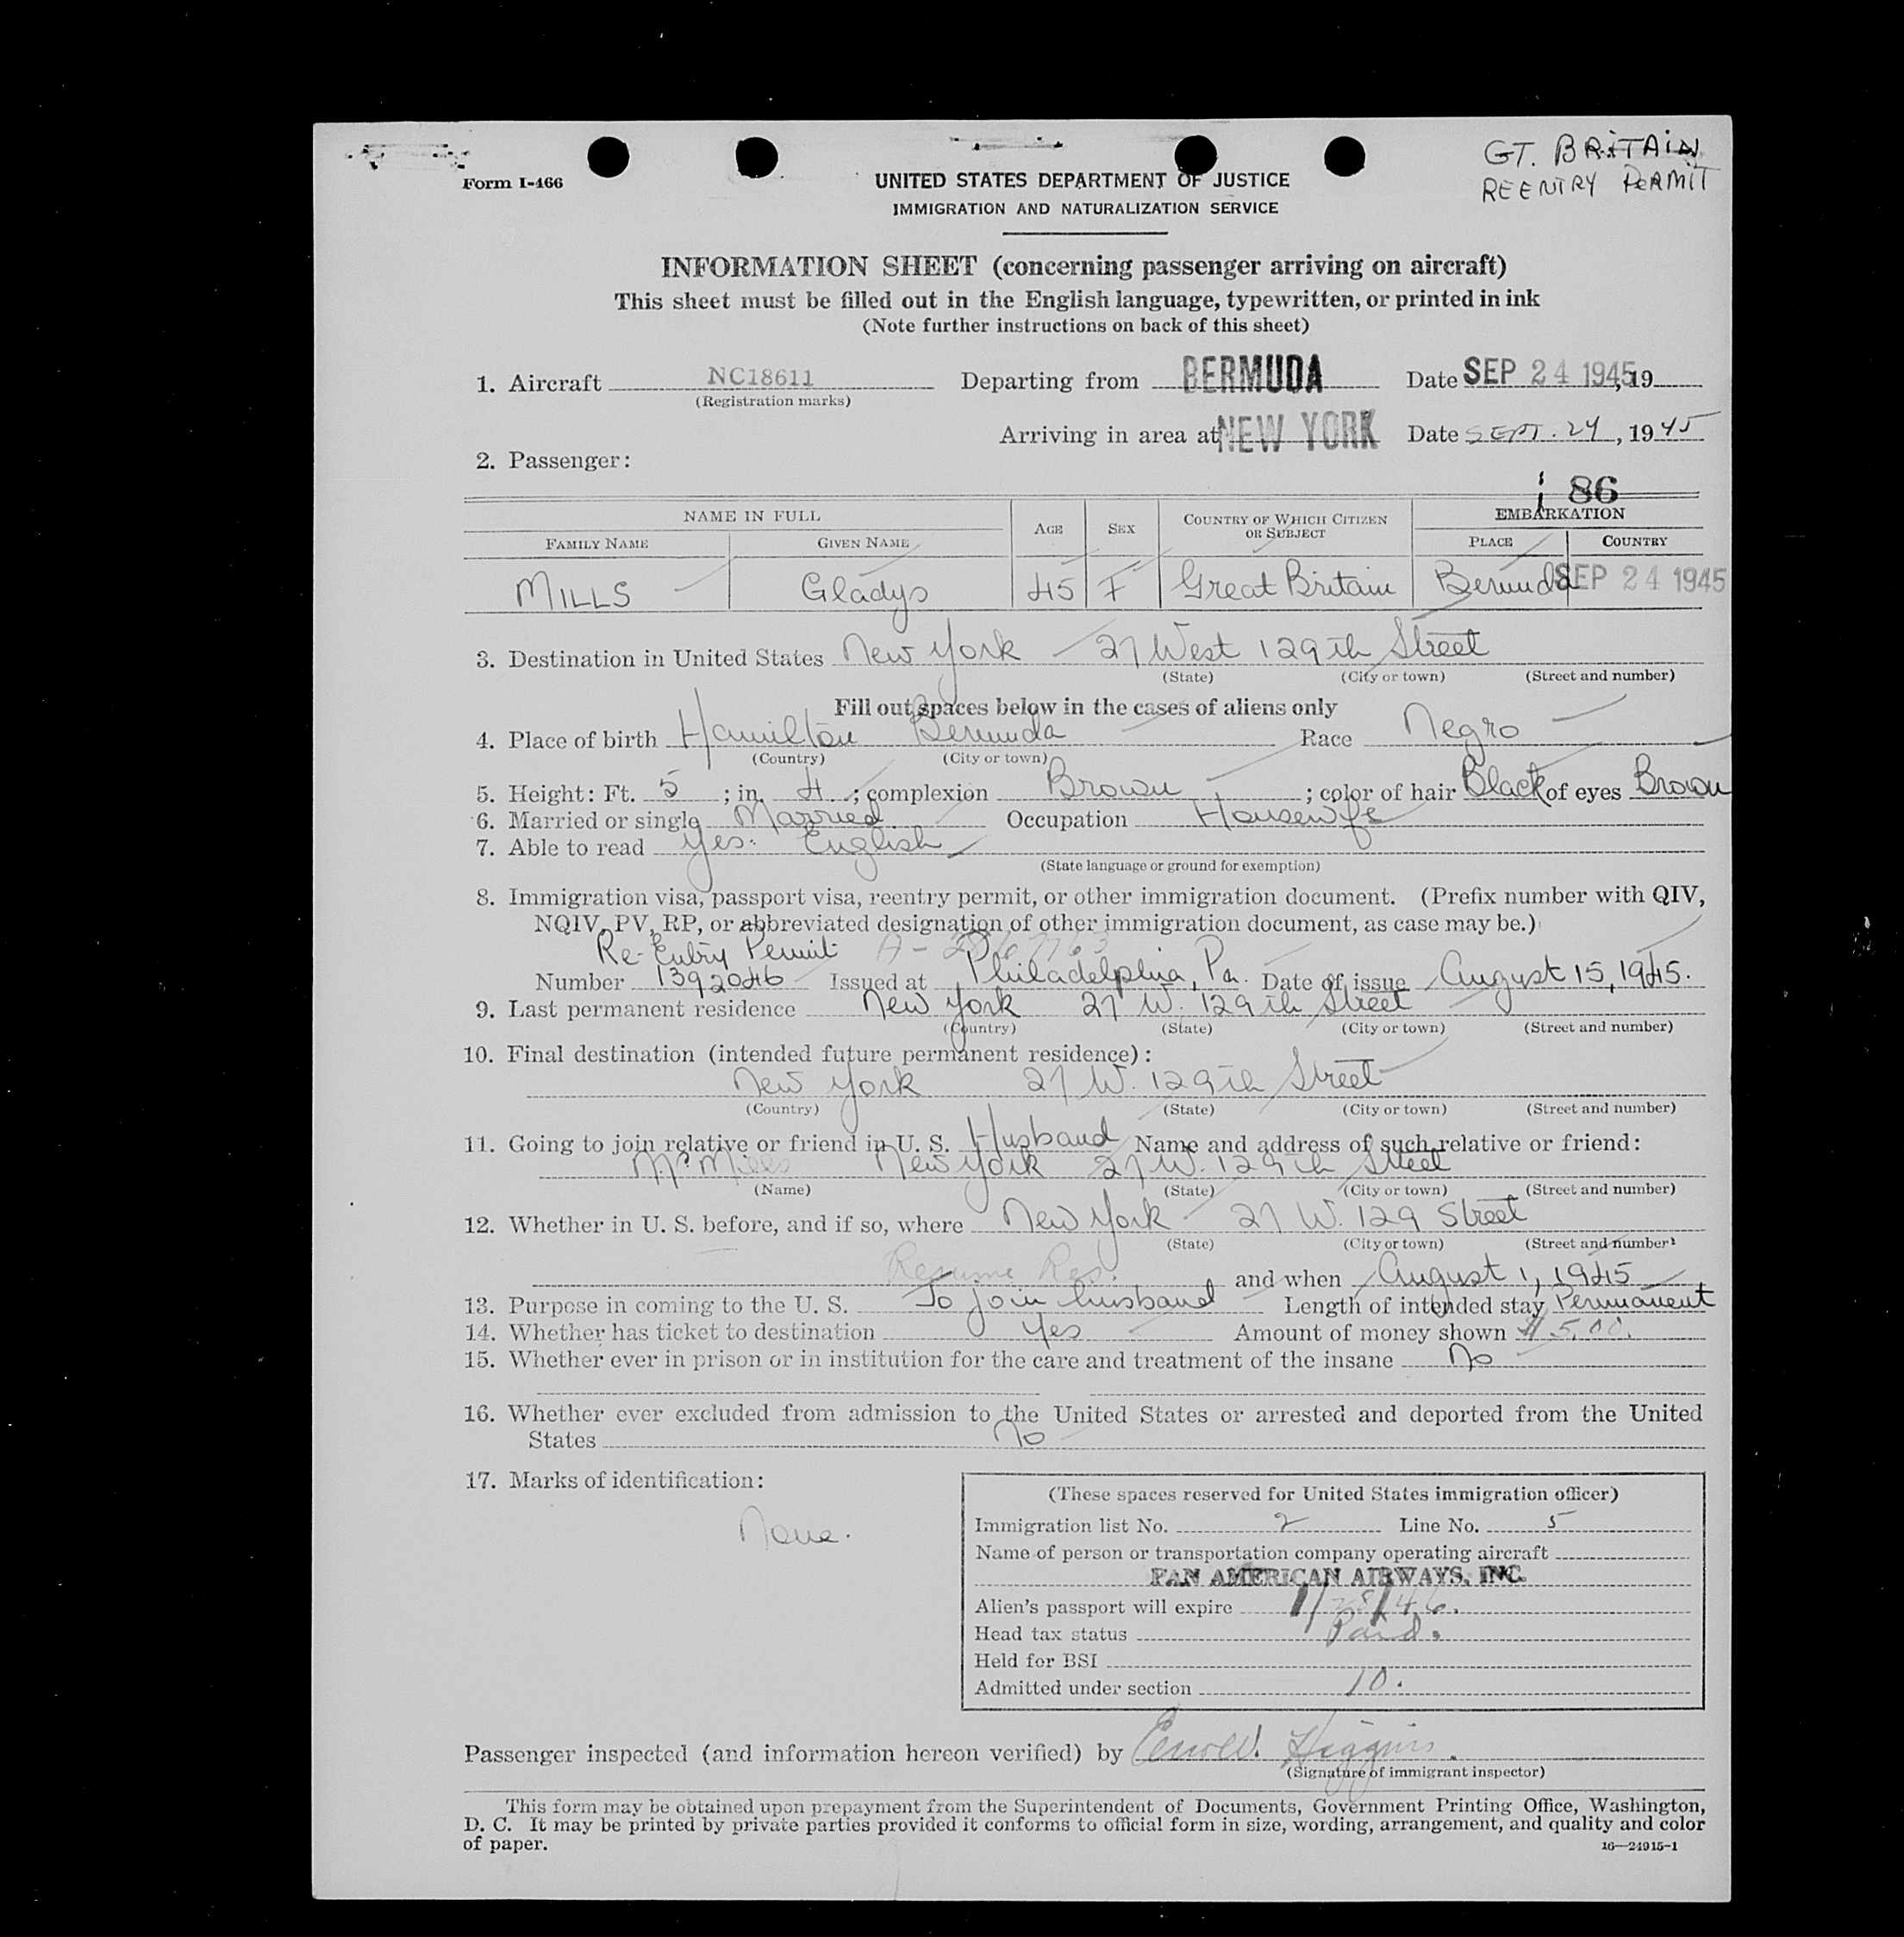 GT. BRITAIN
REENTRY PERMIT
Form I-466
UNITED STATES DEPARTMENT OF JUSTICE
IMMIGRATION AND NATURALIZATION SERVICE
INFORMATION SHEET (concerning passenger arriving on aircraft)
This sheet must be filled out in the English language, typewritten, or printed in ink
(Note further instructions on back of this sheet)
1. Aircraft NC18611 Departing from BERMUDA Date SEP 24 1945, 19
(Registration marks)
Arriving in area at NEW YORK Date SEPT. 24, 1945
2. Passenger:
86
NAME IN FULL AGE SEX COUNTRY OF WHICH CITIZEN OR SUBJECT EMBARKATION
FAMILY NAME GIVEN NAME PLACE COUNTRY
MILLS Gladys 45 F Great Britain Bermuda SEP 24 1945
3. Destination in United States New York - 27 West 129th Street
(State) (City or town) (Street and number)
Fill out spaces below in the cases of aliens only
4. Place of birth Hamilton Bermuda Race Negro
(Country) (City or town)
5. Height: Ft. 5; in. 4; complexion Brown; color of hair Black of eyes Brown
6. Married or single Married Occupation Housewife
7. Able to read Yes: English
(State language or ground for exemption)
8. Immigration visa, passport visa, reentry permit, or other immigration document. (Prefix number with QIV,
NQIV, PV, RP, or abbreviated designation of other immigration document, as case may be.)
Re-Entry Permit
Number 1392046 Issued at Philadelphia, Pa. Date of issue August 15, 1945.
9. Last permanent residence New York 27 W. 129th Street
(Country) (State) (City or town) (Street and number)
10. Final destination (intended future permanent residence):
New York 27 W. 129th Street
(Country) (State) (City or town) (Street and number)
11. Going to join relative or friend in U. S. Husband Name and address of such relative or friend:
Mr. Mills New York 27 W. 129th Street
(Name) (State) (City or town) (Street and number)
12. Whether in U. S. before, and if so, where New York - 27 W. 129 Street
(State) (City or town) (Street and number)
Resume Res. and when August 1, 1945
13. Purpose in coming to the U. S. To join husband Length of intended stay Permanent
14. Whether has ticket to destination Yes Amount of money shown $5.00.
15. Whether ever in prison or in institution for the care and treatment of the insane No
16. Whether ever excluded from admission to the United States or arrested and deported from the United
States No
17. Marks of identification:
None.
(These spaces reserved for United States immigration officer)
Immigration list No. 2 Line No. 5
Name of person or transportation company operating aircraft
PAN AMERICAN AIRWAYS, INC.
Alien's passport will expire 1/28/46.
Head tax status Paid.
Held for BSI
Admitted under section 10.
Passenger inspected (and information hereon verified) by Higgins.
(Signature of immigrant inspector)
This form may be obtained upon prepayment from the Superintendent of Documents, Government Printing Office, Washington,
D. C. It may be printed by private parties provided it conforms to official form in size, wording, arrangement, and quality and color
of paper.
16—24915-1